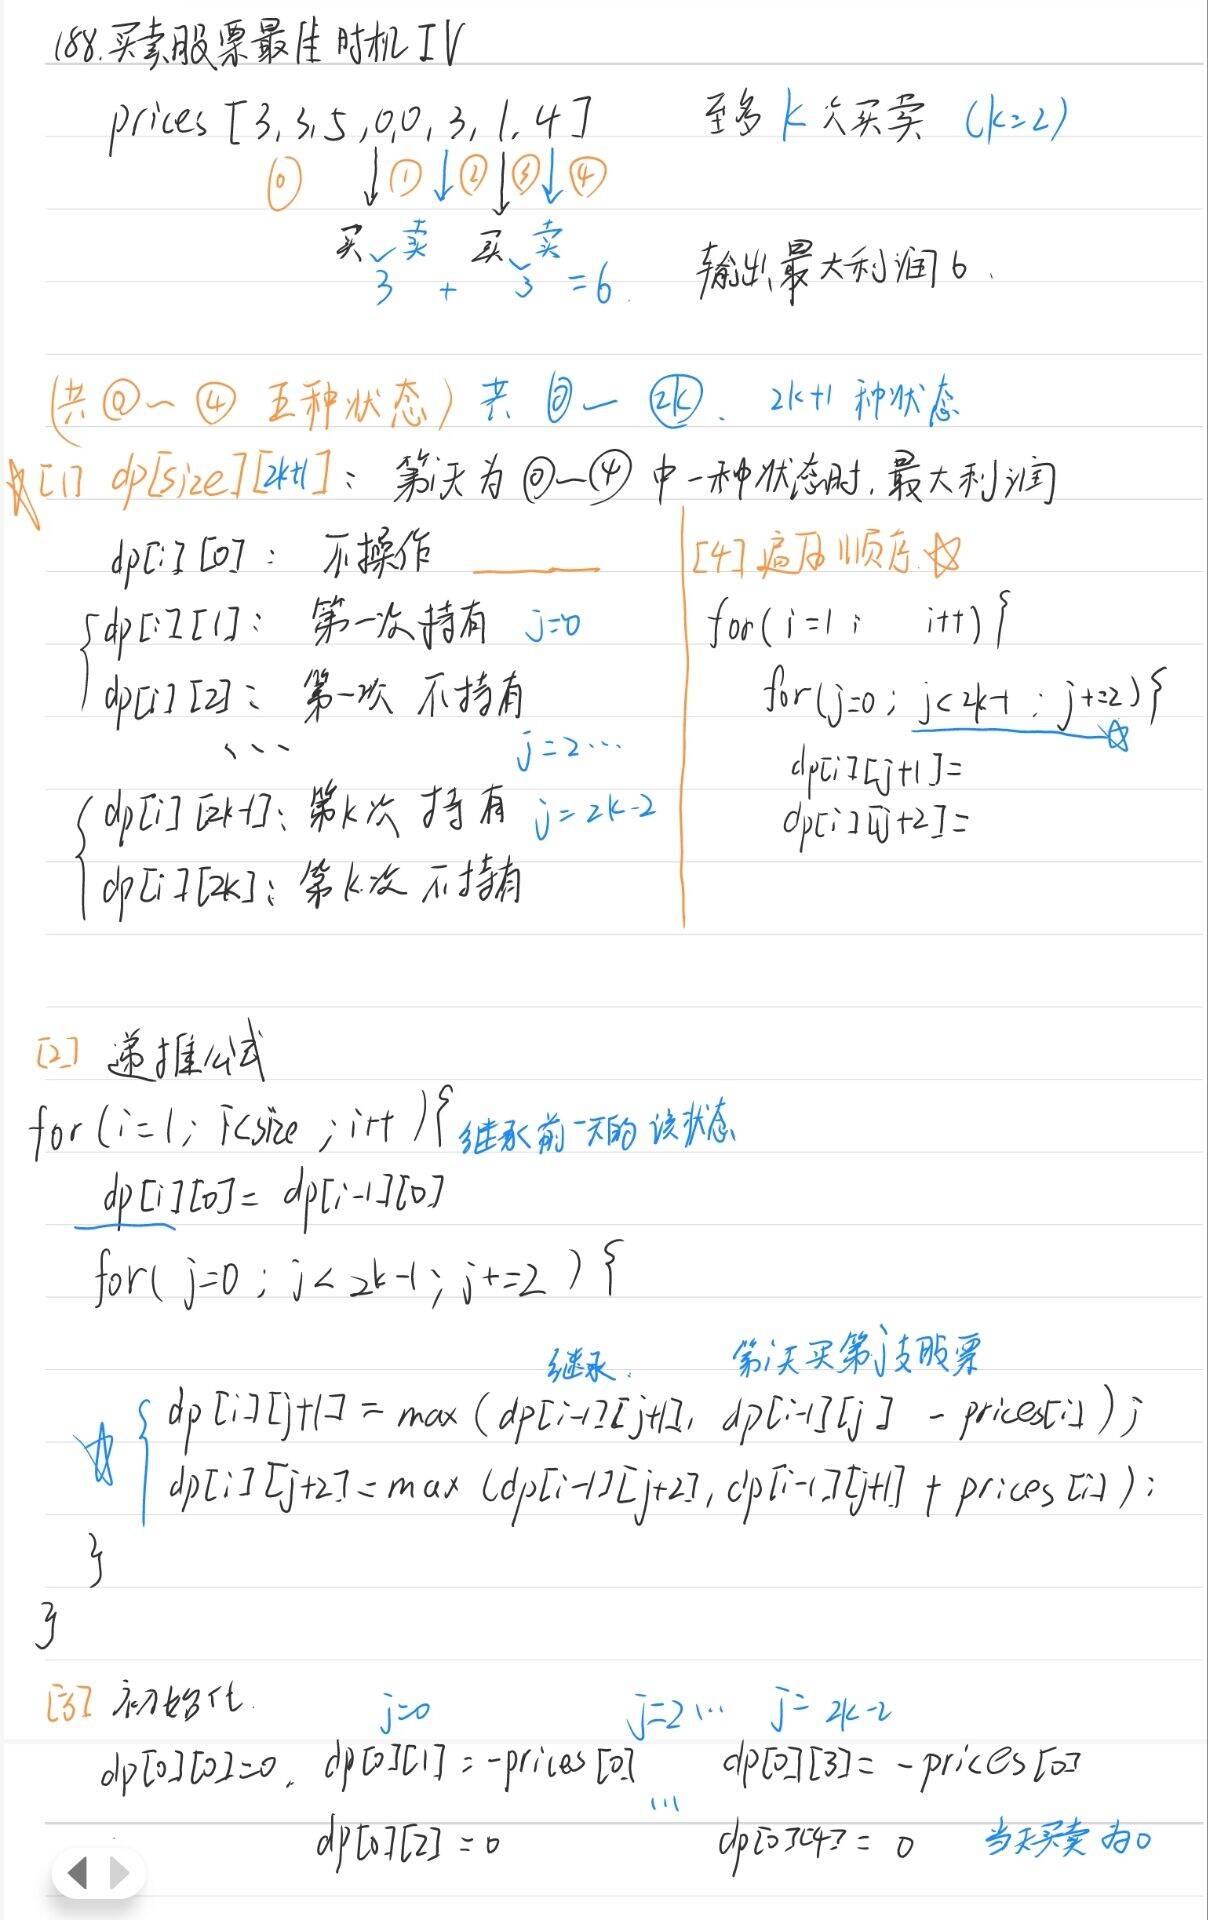 188.买卖股票最佳时机IV
prices [3,3,5,0,0,3,1,4] 至多k次买卖 (k=2)
⓪ ① ② ③ ④
买 卖 买 卖
3 + 3 =6. 输出最大利润6.
(共⓪~④ 五种状态) 共⓪~②k. 2k+1种状态
[1] dp[size][2k+1]: 第i天为⓪~④中一种状态时,最大利润
dp[i][0]: 不操作
dp[i][1]: 第一次持有 j=0
dp[i][2]: 第一次 不持有
... j=2...
dp[i][2k-1]: 第k次 持有 j=2k-2
dp[i][2k]: 第k次 不持有
[4] 遍历顺序.
for(i=1; i++){
for(j=0; j<2k-1; j+=2){
dp[i][j+1]=
dp[i][j+2]=
[2] 递推公式
for(i=1; i<size; i++){ 继承前一天的该状态
dp[i][0]= dp[i-1][0]
for(j=0; j<2k-1; j+=2){
继承. 第i天买第j支股票
dp[i][j+1]=max(dp[i-1][j+1], dp[i-1][j] - prices[i]);
dp[i][j+2]=max(dp[i-1][j+2], dp[i-1][j+1] + prices[i]);
}
}
[3] 初始化. j=0 j=2... j=2k-2
dp[0][0]=0. dp[0][1]=-prices[0] ... dp[0][3]= -prices[0]
dp[0][2]=0 dp[0][4]= 0 当天买卖为0